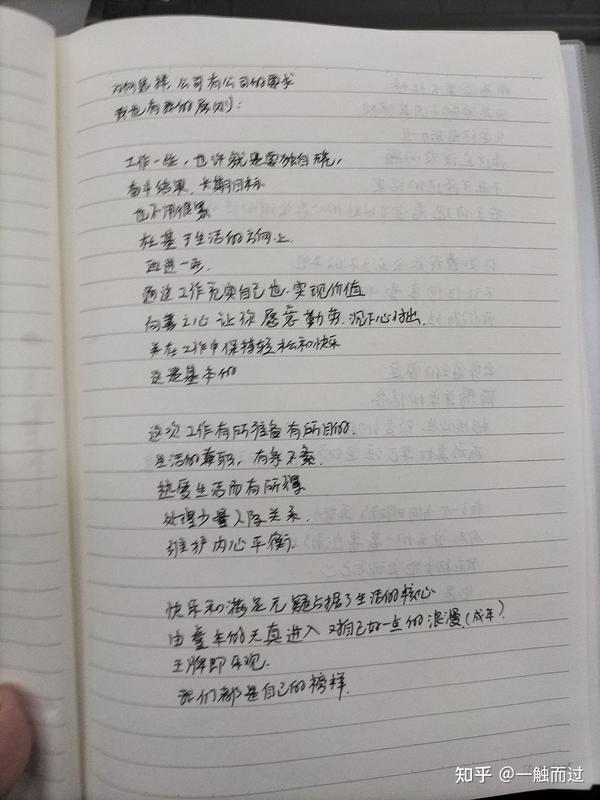 为何选择,公司有公司的要求
我也有我的原则:
工作一些,也许就是要独自境,
奋斗结果、长期目标
也不用很累
在基于生活的方向上
再进一步
通过工作充实自己也实现价值
向善之心 让你愿意勤劳、沉下心
并在工作中保持轻松和快乐
这是基本的
这次工作有所准备有所目的、
生活的兼职,有条不紊.
热爱生活而有所得.
处理少量人际关系.
维护内心平衡.
快乐和满足无疑占据了生活的核心
由童年的天真进入 对自己好一点的浪漫(成年)
王牌即乐观.
我们都是自己的榜样.
知乎 @一触而过